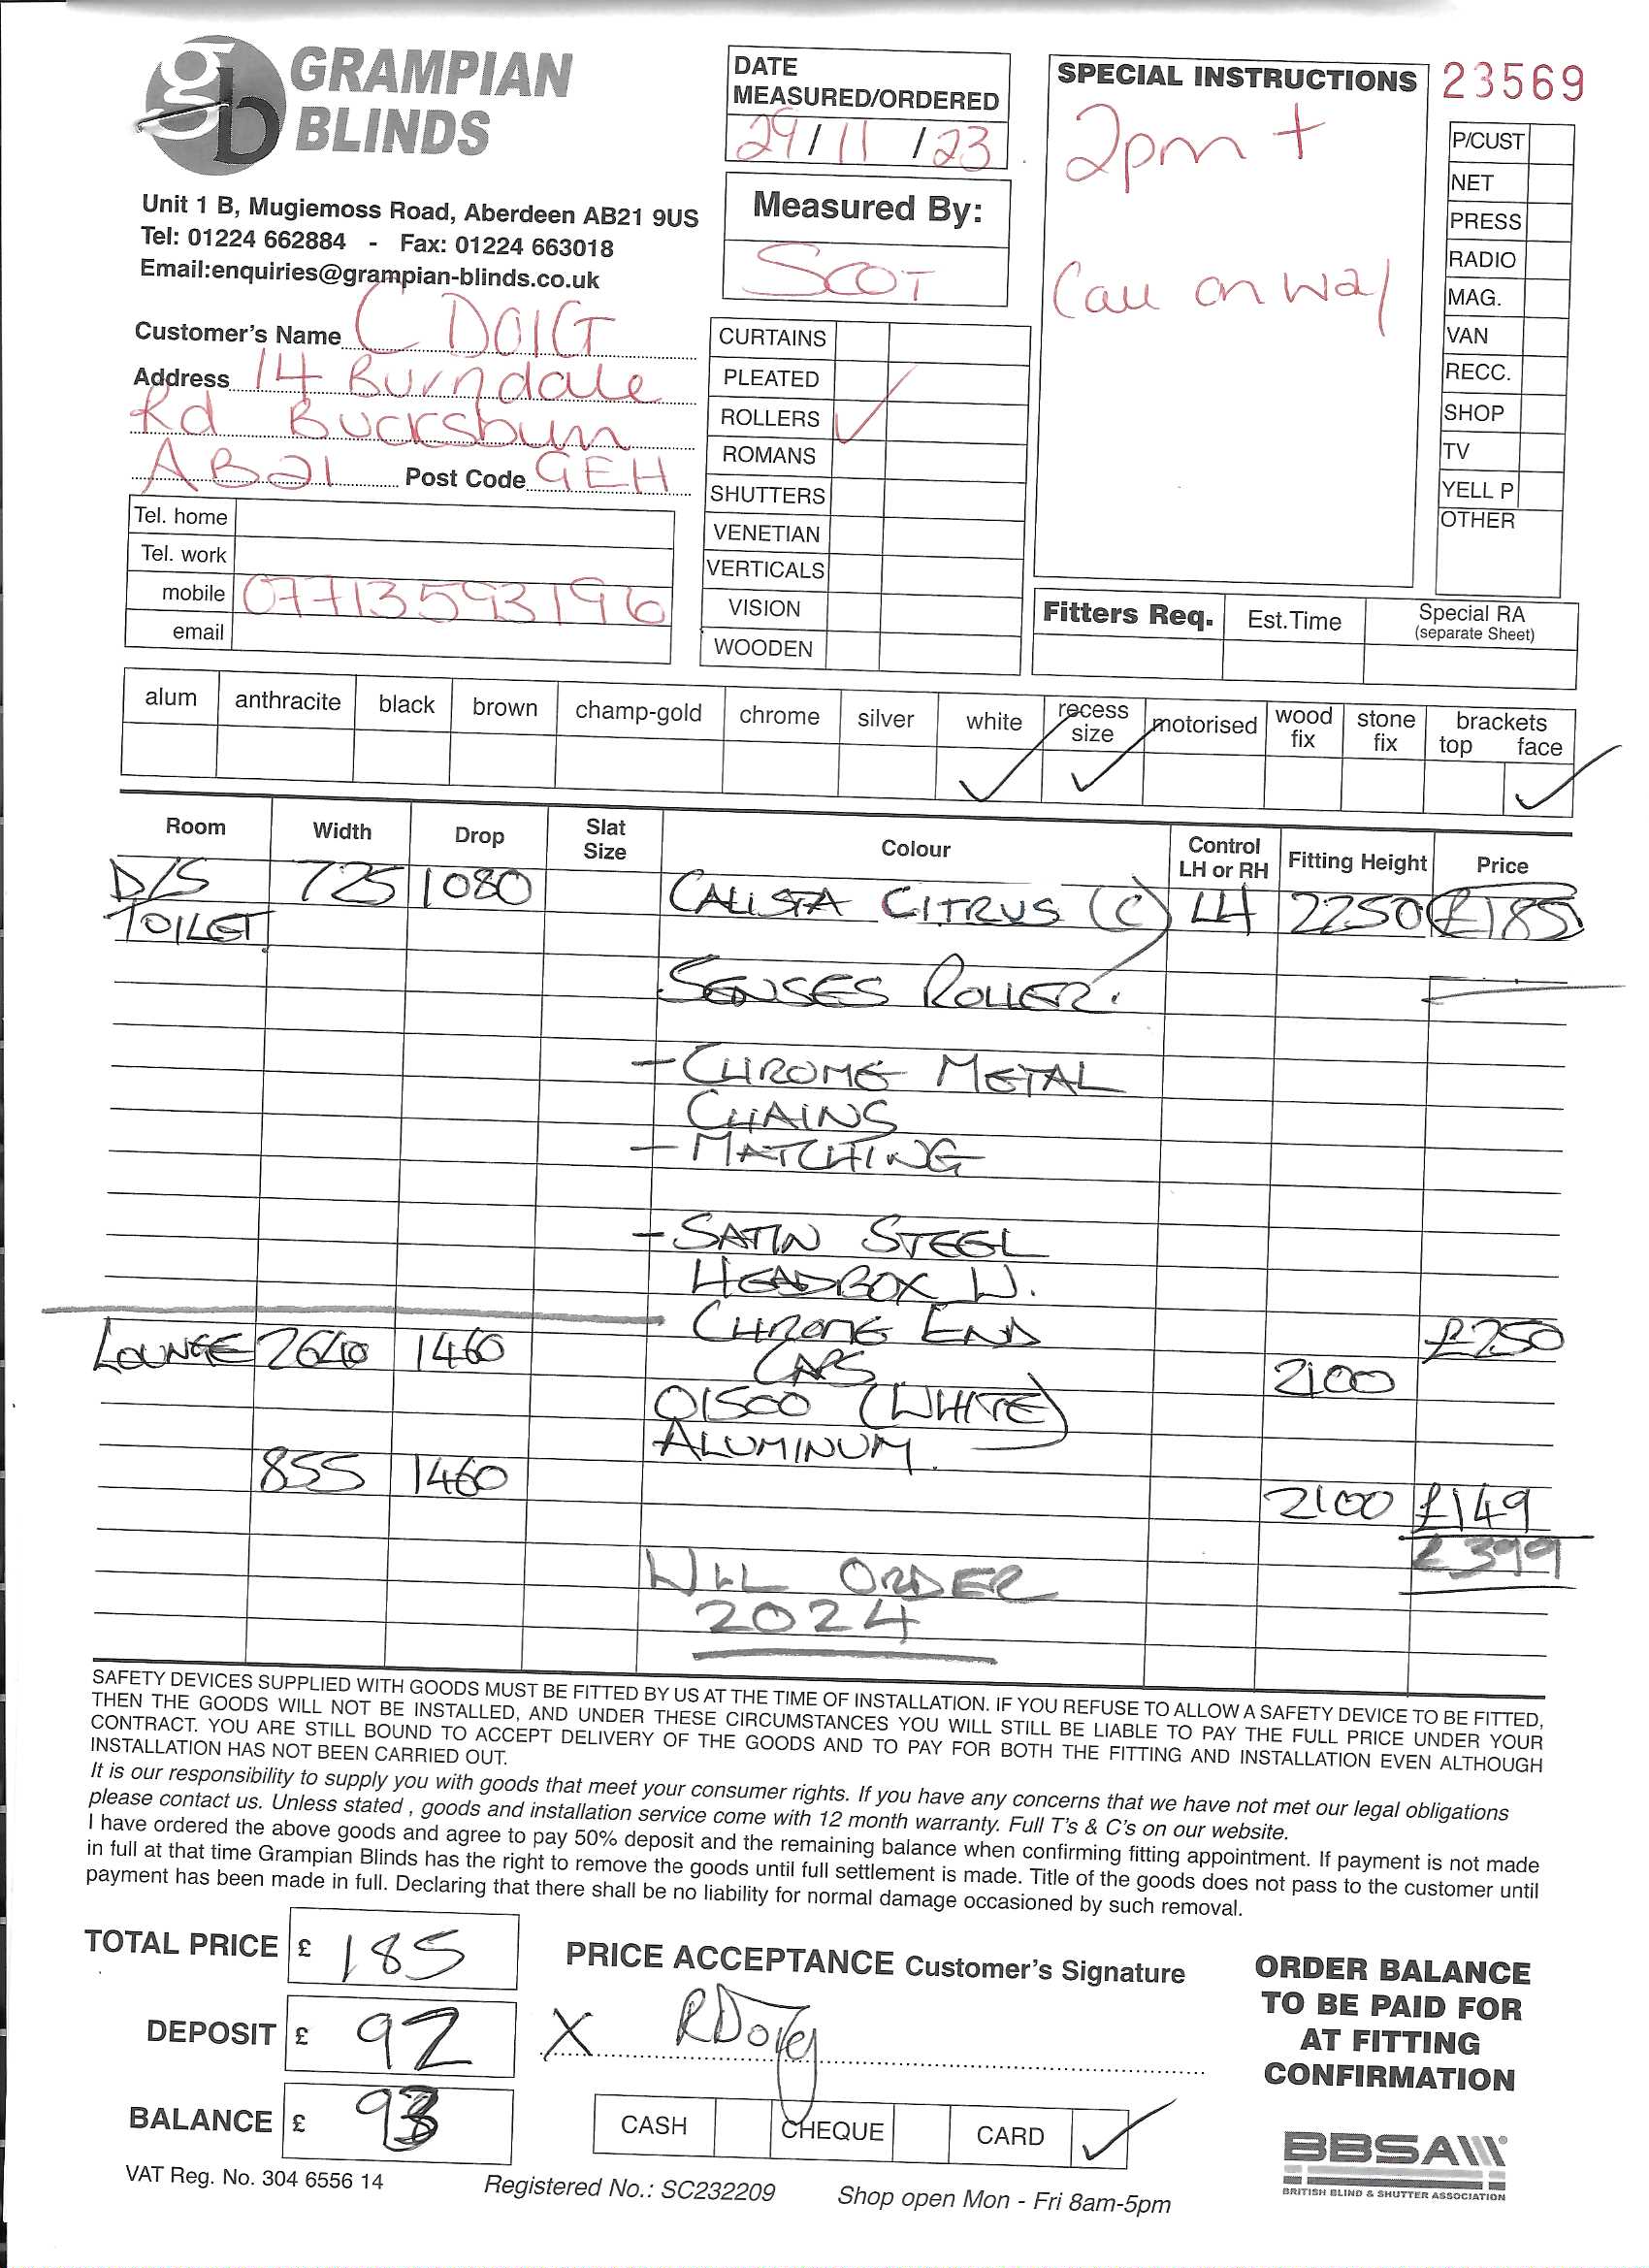 gb GRAMPIAN BLINDS
Unit 1 B, Mugiemoss Road, Aberdeen AB21 9US
Tel: 01224 662884 - Fax: 01224 663018
Email:enquiries@grampian-blinds.co.uk
Customer's Name C DOIG
Address 14 Burndale
Rd Bucksburn
AB21 Post Code 9EH
Tel. home
Tel. work
mobile 07713593196
email
DATE
MEASURED/ORDERED
29/11/23
Measured By:
SCOT
CURTAINS
PLEATED
ROLLERS ✓
ROMANS
SHUTTERS
VENETIAN
VERTICALS
VISION
WOODEN
SPECIAL INSTRUCTIONS
2pm +
Call on way
23569
P/CUST
NET
PRESS
RADIO
MAG.
VAN
RECC.
SHOP
TV
YELL P
OTHER
Fitters Req. Est.Time Special RA
(separate Sheet)
alum anthracite black brown champ-gold chrome silver white recess size motorised wood fix stone fix brackets top face
✓ ✓ ✓
Room Width Drop Slat Size Colour Control LH or RH Fitting Height Price
D/S 725 1080 CALISTA CITRUS (C) LH 2250 £185
TOILET
SENSES ROLLER.
- CHROME METAL
CHAINS
- MATCHING
- SATIN STEEL
HEADBOX W.
CHROME END £250
LOUNGE 2640 1460 CAPS 2100
01500 (WHITE)
ALUMINUM.
855 1460 2100 £149
£399
WILL ORDER
2024
SAFETY DEVICES SUPPLIED WITH GOODS MUST BE FITTED BY US AT THE TIME OF INSTALLATION. IF YOU REFUSE TO ALLOW A SAFETY DEVICE TO BE FITTED,
THEN THE GOODS WILL NOT BE INSTALLED, AND UNDER THESE CIRCUMSTANCES YOU WILL STILL BE LIABLE TO PAY THE FULL PRICE UNDER YOUR
CONTRACT. YOU ARE STILL BOUND TO ACCEPT DELIVERY OF THE GOODS AND TO PAY FOR BOTH THE FITTING AND INSTALLATION EVEN ALTHOUGH
INSTALLATION HAS NOT BEEN CARRIED OUT.
It is our responsibility to supply you with goods that meet your consumer rights. If you have any concerns that we have not met our legal obligations
please contact us. Unless stated , goods and installation service come with 12 month warranty. Full T's & C's on our website.
I have ordered the above goods and agree to pay 50% deposit and the remaining balance when confirming fitting appointment. If payment is not made
in full at that time Grampian Blinds has the right to remove the goods until full settlement is made. Title of the goods does not pass to the customer until
payment has been made in full. Declaring that there shall be no liability for normal damage occasioned by such removal.
TOTAL PRICE £ 185
DEPOSIT £ 92
BALANCE £ 93
PRICE ACCEPTANCE Customer's Signature
X RDoig
CASH CHEQUE CARD ✓
ORDER BALANCE
TO BE PAID FOR
AT FITTING
CONFIRMATION
BBSA
BRITISH BLIND & SHUTTER ASSOCIATION
VAT Reg. No. 304 6556 14 Registered No.: SC232209 Shop open Mon - Fri 8am-5pm